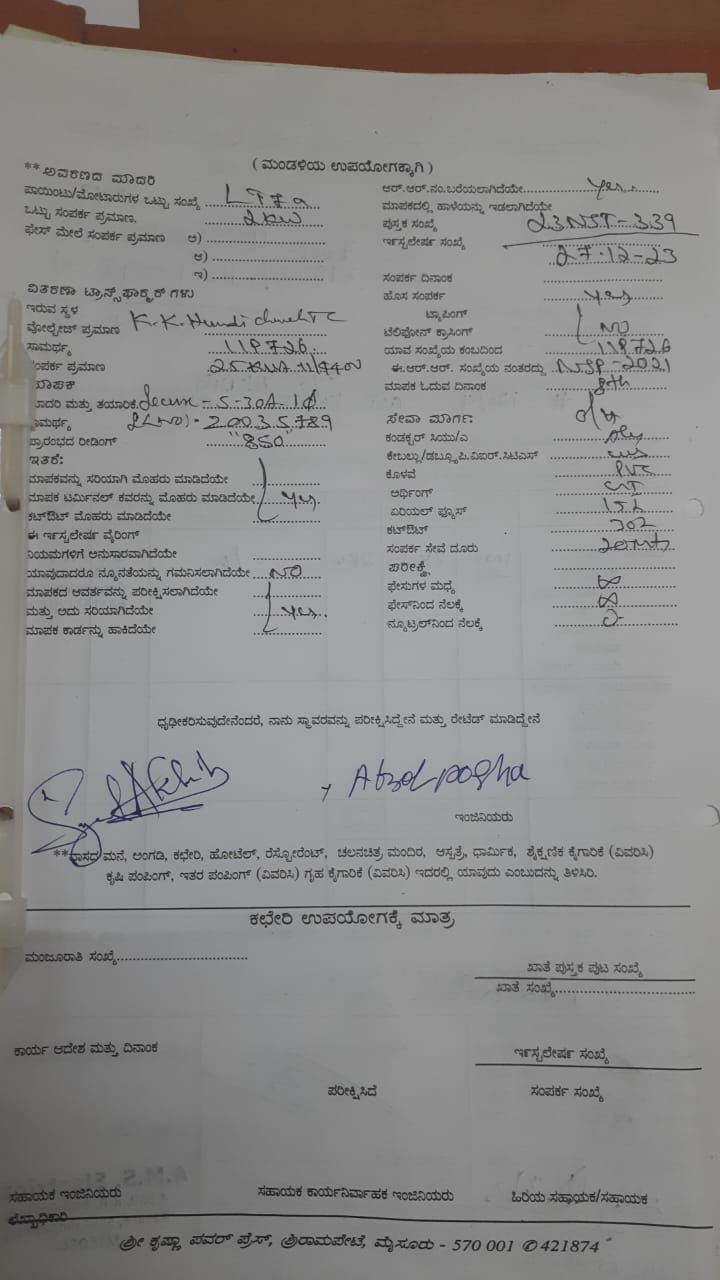 ( ಮಂಡಳಿಯ ಉಪಯೋಗಕ್ಕಾಗಿ )
**ಆವರಣದ ಮಾದರಿ
ಪಾಯಿಂಟು/ಮೋಟಾರುಗಳ ಒಟ್ಟು ಸಂಖ್ಯೆ
ಒಟ್ಟು ಸಂಪರ್ಕ ಪ್ರಮಾಣ. 2KW
ಫೇಸ್ ಮೇಲೆ ಸಂಪರ್ಕ ಪ್ರಮಾಣ ಅ)
ಆ)
ಇ)
ವಿತರಣಾ ಟ್ರಾನ್ಸ್‌ಫಾರ್ಮರ್ ಗಳು
ಇರುವ ಸ್ಥಳ
ವೋಲ್ಟೇಜ್ ಪ್ರಮಾಣ K.K.Hundi
ಸಾಮರ್ಥ್ಯ 118726
ಸಂಪರ್ಕ ಪ್ರಮಾಣ 25KVA 11/440V
ಮಾಪಕ
ಮಾದರಿ ಮತ್ತು ತಯಾರಿಕೆ. - 5-30A-1ϕ
ಸಾಮರ್ಥ್ಯ SLNO)- 20035789
ಪ್ರಾರಂಭದ ರೀಡಿಂಗ್ "850"
ಇತರೆ:
ಮಾಪಕವನ್ನು ಸರಿಯಾಗಿ ಮೊಹರು ಮಾಡಿದೆಯೇ
ಮಾಪಕ ಟರ್ಮಿನಲ್ ಕವರನ್ನು ಮೊಹರು ಮಾಡಿದೆಯೇ. Yes.
ಕಟ್‌ಔಟ್ ಮೊಹರು ಮಾಡಿದೆಯೇ
ಈ ಇನ್ಸ್ಟಲೇಷನ್ ವೈರಿಂಗ್
ನಿಯಮಗಳಿಗೆ ಅನುಸಾರವಾಗಿದೆಯೇ
ಯಾವುದಾದರೂ ನ್ಯೂನತೆಯನ್ನು ಗಮನಿಸಲಾಗಿದೆಯೇ NO
ಮಾಪಕದ ಆವರ್ತವನ್ನು ಪರೀಕ್ಷಿಸಲಾಗಿದೆಯೇ
ಮತ್ತು ಅದು ಸರಿಯಾಗಿದೆಯೇ Yes.
ಮಾಪಕ ಕಾರ್ಡನ್ನು ಹಾಕಿದೆಯೇ
ಆರ್.ಆರ್.ನಂ.ಬರೆಯಲಾಗಿದೆಯೇ Yes.
ಮಾಪಕದಲ್ಲಿ ಹಾಳೆಯನ್ನು ಇಡಲಾಗಿದೆಯೇ
ಪುಸ್ತಕ ಸಂಖ್ಯೆ 23NST-339
ಇನ್ಸ್ಟಲೇಷನ್ ಸಂಖ್ಯೆ 27-12-23
ಸಂಪರ್ಕ ದಿನಾಂಕ
ಹೊಸ ಸಂಪರ್ಕ yes
ಟ್ಯಾಪಿಂಗ್
ಟೆಲಿಫೋನ್ ಕ್ರಾಸಿಂಗ್ NO
ಯಾವ ಸಂಖ್ಯೆಯ ಕಂಬದಿಂದ 118726
ಈ.ಆರ್.ಆರ್. ಸಂಖ್ಯೆಯ ನಂತರದ್ದು -2021
ಮಾಪಕ ಓದುವ ದಿನಾಂಕ 8th
ಸೇವಾ ಮಾರ್ಗ:
ಕಂಡಕ್ಟರ್ ಸಿಯು/ಎ
ಕೇಬಲ್ಲು/ಡಬ್ಲ್ಯೂ.ಪಿ.ವಿಐಆರ್.ಸಿಟಿಎಸ್
ಕೊಳವೆ PVC
ಅರ್ಥಿಂಗ್
ಏರಿಯಲ್ ಫ್ಯೂಸ್
ಕಟ್‌ಔಟ್
ಸಂಪರ್ಕ ಸೇವೆ ದೂರು 20Mts
ಪರೀಕ್ಷೆ
ಫೇಸುಗಳ ಮಧ್ಯೆ ∞
ಫೇಸ್‌ನಿಂದ ನೆಲಕ್ಕೆ ∞
ನ್ಯೂಟ್ರಲ್‌ನಿಂದ ನೆಲಕ್ಕೆ
ಧೃಢೀಕರಿಸುವುದೇನೆಂದರೆ, ನಾನು ಸ್ಥಾವರವನ್ನು ಪರೀಕ್ಷಿಸಿದ್ದೇನೆ ಮತ್ತು ರೇಟೆಡ್ ಮಾಡಿದ್ದೇನೆ
Afzal pasha
ಇಂಜಿನಿಯರು
**ವಾಸದ ಮನೆ, ಅಂಗಡಿ, ಕಛೇರಿ, ಹೋಟೆಲ್, ರೆಸ್ಟೋರೆಂಟ್, ಚಲನಚಿತ್ರ ಮಂದಿರ, ಆಸ್ಪತ್ರೆ, ಧಾರ್ಮಿಕ, ಶೈಕ್ಷಣಿಕ ಕೈಗಾರಿಕೆ (ವಿವರಿಸಿ)
ಕೃಷಿ ಪಂಪಿಂಗ್, ಇತರ ಪಂಪಿಂಗ್ (ವಿವರಿಸಿ) ಗೃಹ ಕೈಗಾರಿಕೆ (ವಿವರಿಸಿ) ಇದರಲ್ಲಿ ಯಾವುದು ಎಂಬುದನ್ನು ತಿಳಿಸಿರಿ.
ಕಛೇರಿ ಉಪಯೋಗಕ್ಕೆ ಮಾತ್ರ
ಮಂಜೂರಾತಿ ಸಂಖ್ಯೆ
ಖಾತೆ ಪುಸ್ತಕ ಪುಟ ಸಂಖ್ಯೆ
ಖಾತೆ ಸಂಖ್ಯೆ
ಕಾರ್ಯ ಆದೇಶ ಮತ್ತು ದಿನಾಂಕ
ಇನ್ಸ್ಟಲೇಷನ್ ಸಂಖ್ಯೆ
ಪರೀಕ್ಷಿಸಿದೆ
ಸಂಪರ್ಕ ಸಂಖ್ಯೆ
ಸಹಾಯಕ ಇಂಜಿನಿಯರು
ಸಹಾಯಕ ಕಾರ್ಯನಿರ್ವಾಹಕ ಇಂಜಿನಿಯರು
ಹಿರಿಯ ಸಹಾಯಕ/ಸಹಾಯಕ
ಶ್ರೀ ಕೃಷ್ಣಾ ಪವರ್ ಪ್ರೆಸ್, ಶ್ರೀರಾಮಪೇಟೆ, ಮೈಸೂರು - 570 001 ✆ 421874